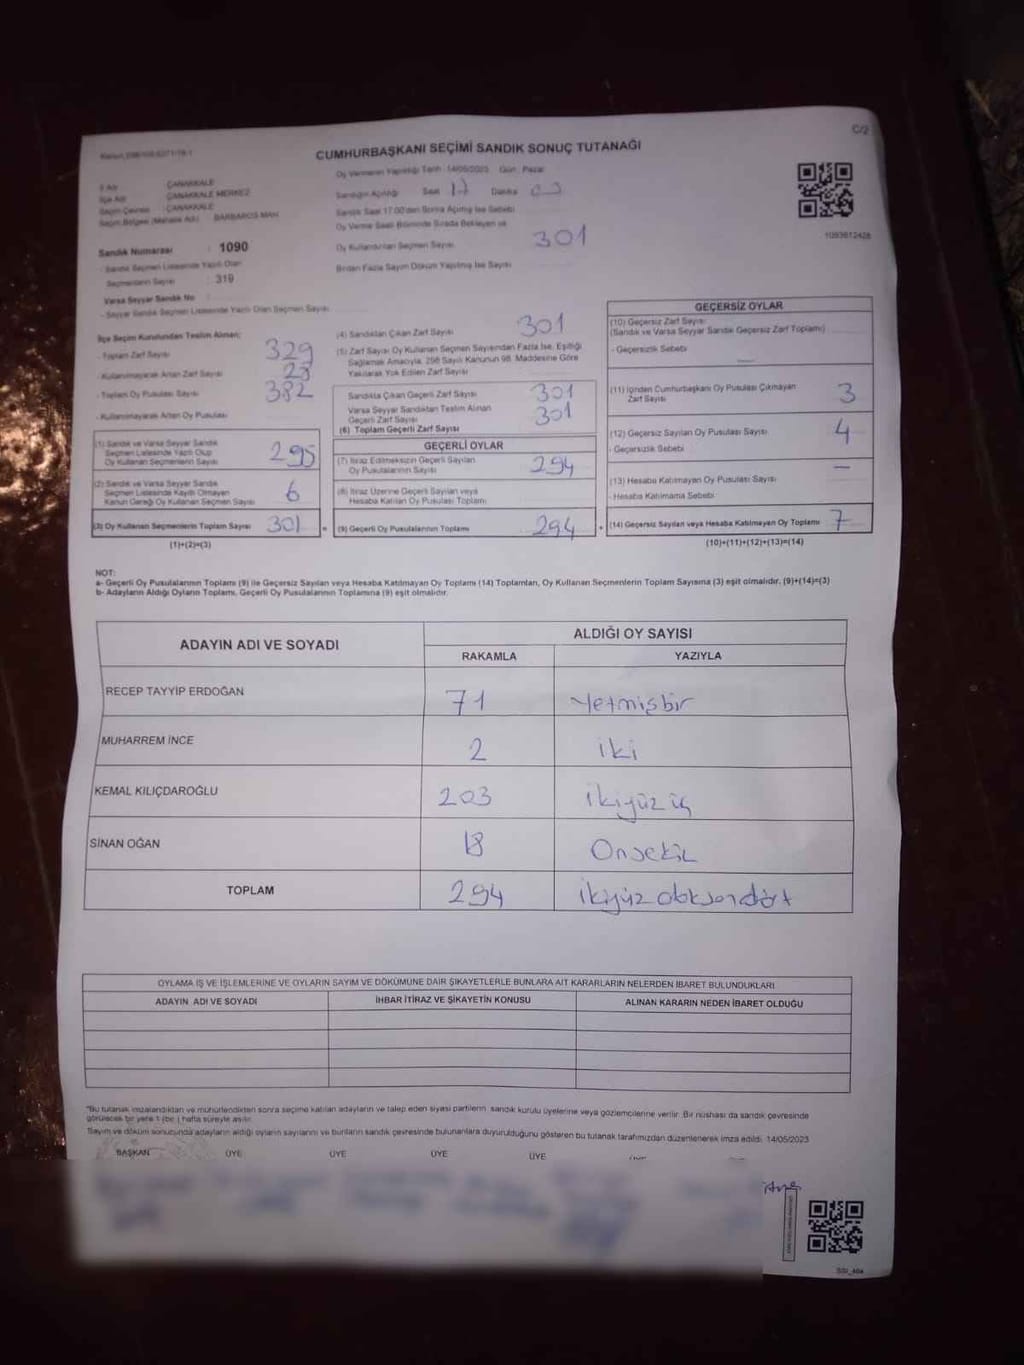 C/2
CUMHURBAŞKANI SEÇİMİ SANDIK SONUÇ TUTANAĞI
Oy Vermenin Yapıldığı Tarih : 14/05/2023 Gün : Pazar
İl Adı : ÇANAKKALE
İlçe Adı : ÇANAKKALE MERKEZ
Seçim Çevresi : ÇANAKKALE
Seçim Bölgesi (Mahalle Adı) : BARBAROS MAH
Sandığın Açılışı Saat 17 Dakika 00
Sandık Saat 17.00'den Sonra Açılmış İse Sebebi
Oy Verme Saati Bitiminde Sırada Bekleyen ve
Oy Kullandırılan Seçmen Sayısı 301
Birden Fazla Sayım Döküm Yapılmış İse Sayısı
1093612428
Sandık Numarası : 1090
- Sandık Seçmen Listesinde Yazılı Olan
Seçmenlerin Sayısı : 319
Varsa Seyyar Sandık No
- Seyyar Sandık Seçmen Listesinde Yazılı Olan Seçmen Sayısı
İlçe Seçim Kurulundan Teslim Alınan;
- Toplam Zarf Sayısı 329
- Kullanılmayarak Artan Zarf Sayısı 28
- Toplam Oy Pusulası Sayısı 382
- Kullanılmayarak Artan Oy Pusulası
(1) Sandık ve Varsa Seyyar Sandık
Seçmen Listesinde Yazılı Olup
Oy Kullanan Seçmenlerin Sayısı 295
(2) Sandık ve Varsa Seyyar Sandık
Seçmen Listesinde Kayıtlı Olmayan
Kanun Gereği Oy Kullanan Seçmen Sayısı 6
(3) Oy Kullanan Seçmenlerin Toplam Sayısı 301
(1)+(2)=(3)
(4) Sandıktan Çıkan Zarf Sayısı 301
(5) Zarf Sayısı Oy Kullanan Seçmen Sayısından Fazla İse, Eşitliği
Sağlamak Amacıyla, 298 Sayılı Kanunun 98. Maddesine Göre
Yakılarak Yok Edilen Zarf Sayısı
Sandıkta Çıkan Geçerli Zarf Sayısı 301
Varsa Seyyar Sandıktan Teslim Alınan
Geçerli Zarf Sayısı
(6) Toplam Geçerli Zarf Sayısı 301
GEÇERLİ OYLAR
(7) İtiraz Edilmeksizin Geçerli Sayılan
Oy Pusulalarının Sayısı 294
(8) İtiraz Üzerine Geçerli Sayılan veya
Hesaba Katılan Oy Pusulası Toplamı
(9) Geçerli Oy Pusulalarının Toplamı 294
GEÇERSİZ OYLAR
(10) Geçersiz Zarf Sayısı
(Sandık ve Varsa Seyyar Sandık Geçersiz Zarf Toplamı)
- Geçersizlik Sebebi
(11) İçinden Cumhurbaşkanı Oy Pusulası Çıkmayan
Zarf Sayısı 3
(12) Geçersiz Sayılan Oy Pusulası Sayısı 4
- Geçersizlik Sebebi
(13) Hesaba Katılmayan Oy Pusulası Sayısı —
- Hesaba Katılmama Sebebi
(14) Geçersiz Sayılan veya Hesaba Katılmayan Oy Toplamı 7
(10)+(11)+(12)+(13)=(14)
NOT:
a- Geçerli Oy Pusulalarının Toplamı (9) ile Geçersiz Sayılan veya Hesaba Katılmayan Oy Toplamı (14) Toplamları, Oy Kullanan Seçmenlerin Toplam Sayısına (3) eşit olmalıdır. (9)+(14)=(3)
b- Adayların Aldığı Oyların Toplamı, Geçerli Oy Pusulalarının Toplamına (9) eşit olmalıdır.
ADAYIN ADI VE SOYADI ALDIĞI OY SAYISI
RAKAMLA YAZIYLA
RECEP TAYYİP ERDOĞAN 71 Yetmişbir
MUHARREM İNCE 2 iki
KEMAL KILIÇDAROĞLU 203 ikiyüz üç
SİNAN OĞAN 18 Onsekiz
TOPLAM 294 ikiyüz doksandört
OYLAMA İŞ VE İŞLEMLERİNE VE OYLARIN SAYIM VE DÖKÜMÜNE DAİR ŞİKAYETLERLE BUNLARA AİT KARARLARIN NELERDEN İBARET BULUNDUKLARI
ADAYIN ADI VE SOYADI İHBAR İTİRAZ VE ŞİKAYETİN KONUSU ALINAN KARARIN NEDEN İBARET OLDUĞU
*Bu tutanak imzalandıktan ve mühürlendikten sonra seçime katılan adayların ve talep eden siyasi partilerin sandık kurulu üyelerine veya gözlemcilerine verilir. Bir nüshası da sandık çevresinde
görülecek bir yere 1 (bir) hafta süreyle asılır.
Sayım ve döküm sonucunda adayların aldığı oyların sayılarını ve bunların sandık çevresinde bulunanlara duyurulduğunu gösteren bu tutanak tarafımızdan düzenlenerek imza edildi. 14/05/2023
BAŞKAN ÜYE ÜYE ÜYE ÜYE